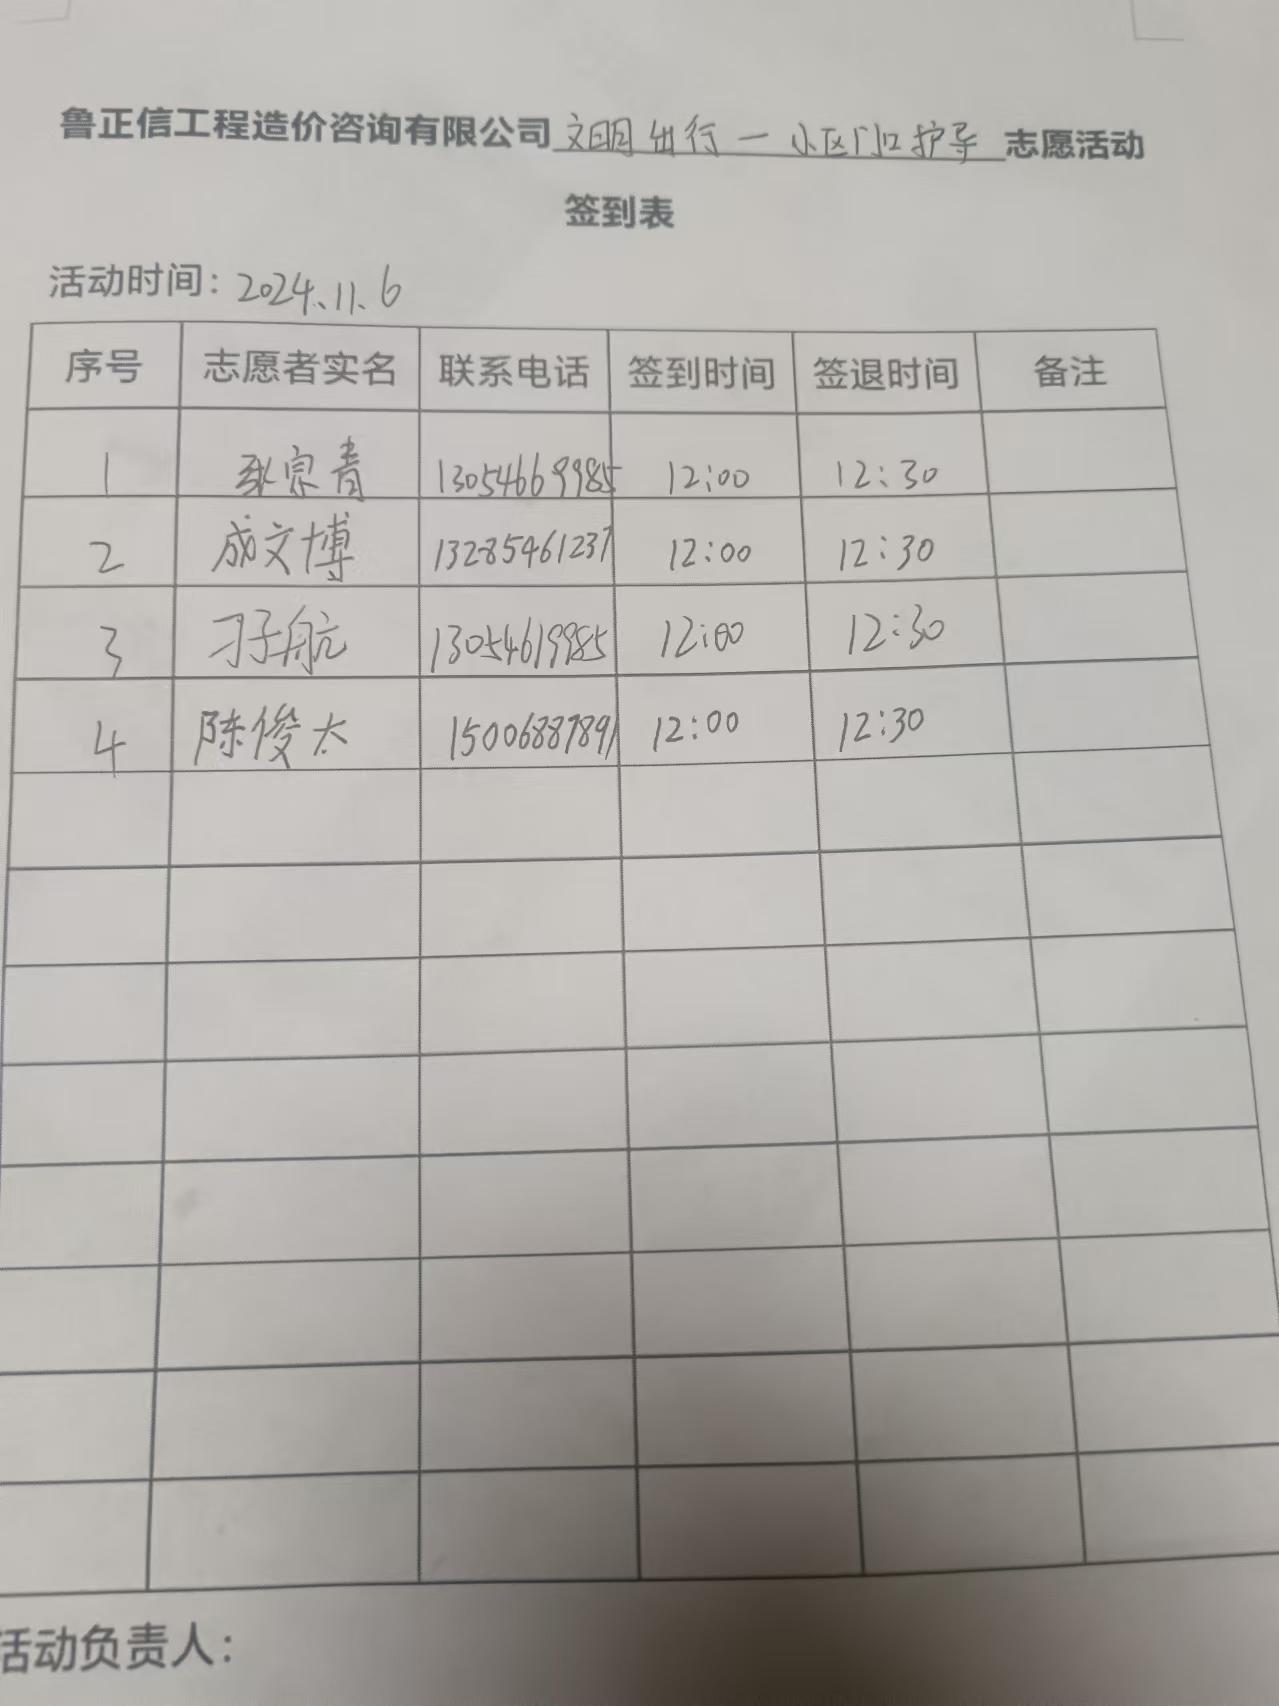 鲁正信工程造价咨询有限公司文明出行一小区门口护导志愿活动
签到表
活动时间：2024.11.6
序号 志愿者实名 联系电话 签到时间 签退时间 备注
1 宗青 13054669985 12:00 12:30
2 成文博 13285461237 12:00 12:30
3 刁子航 13054619985 12:00 12:30
4 陈俊太 15006887891 12:00 12:30
活动负责人：